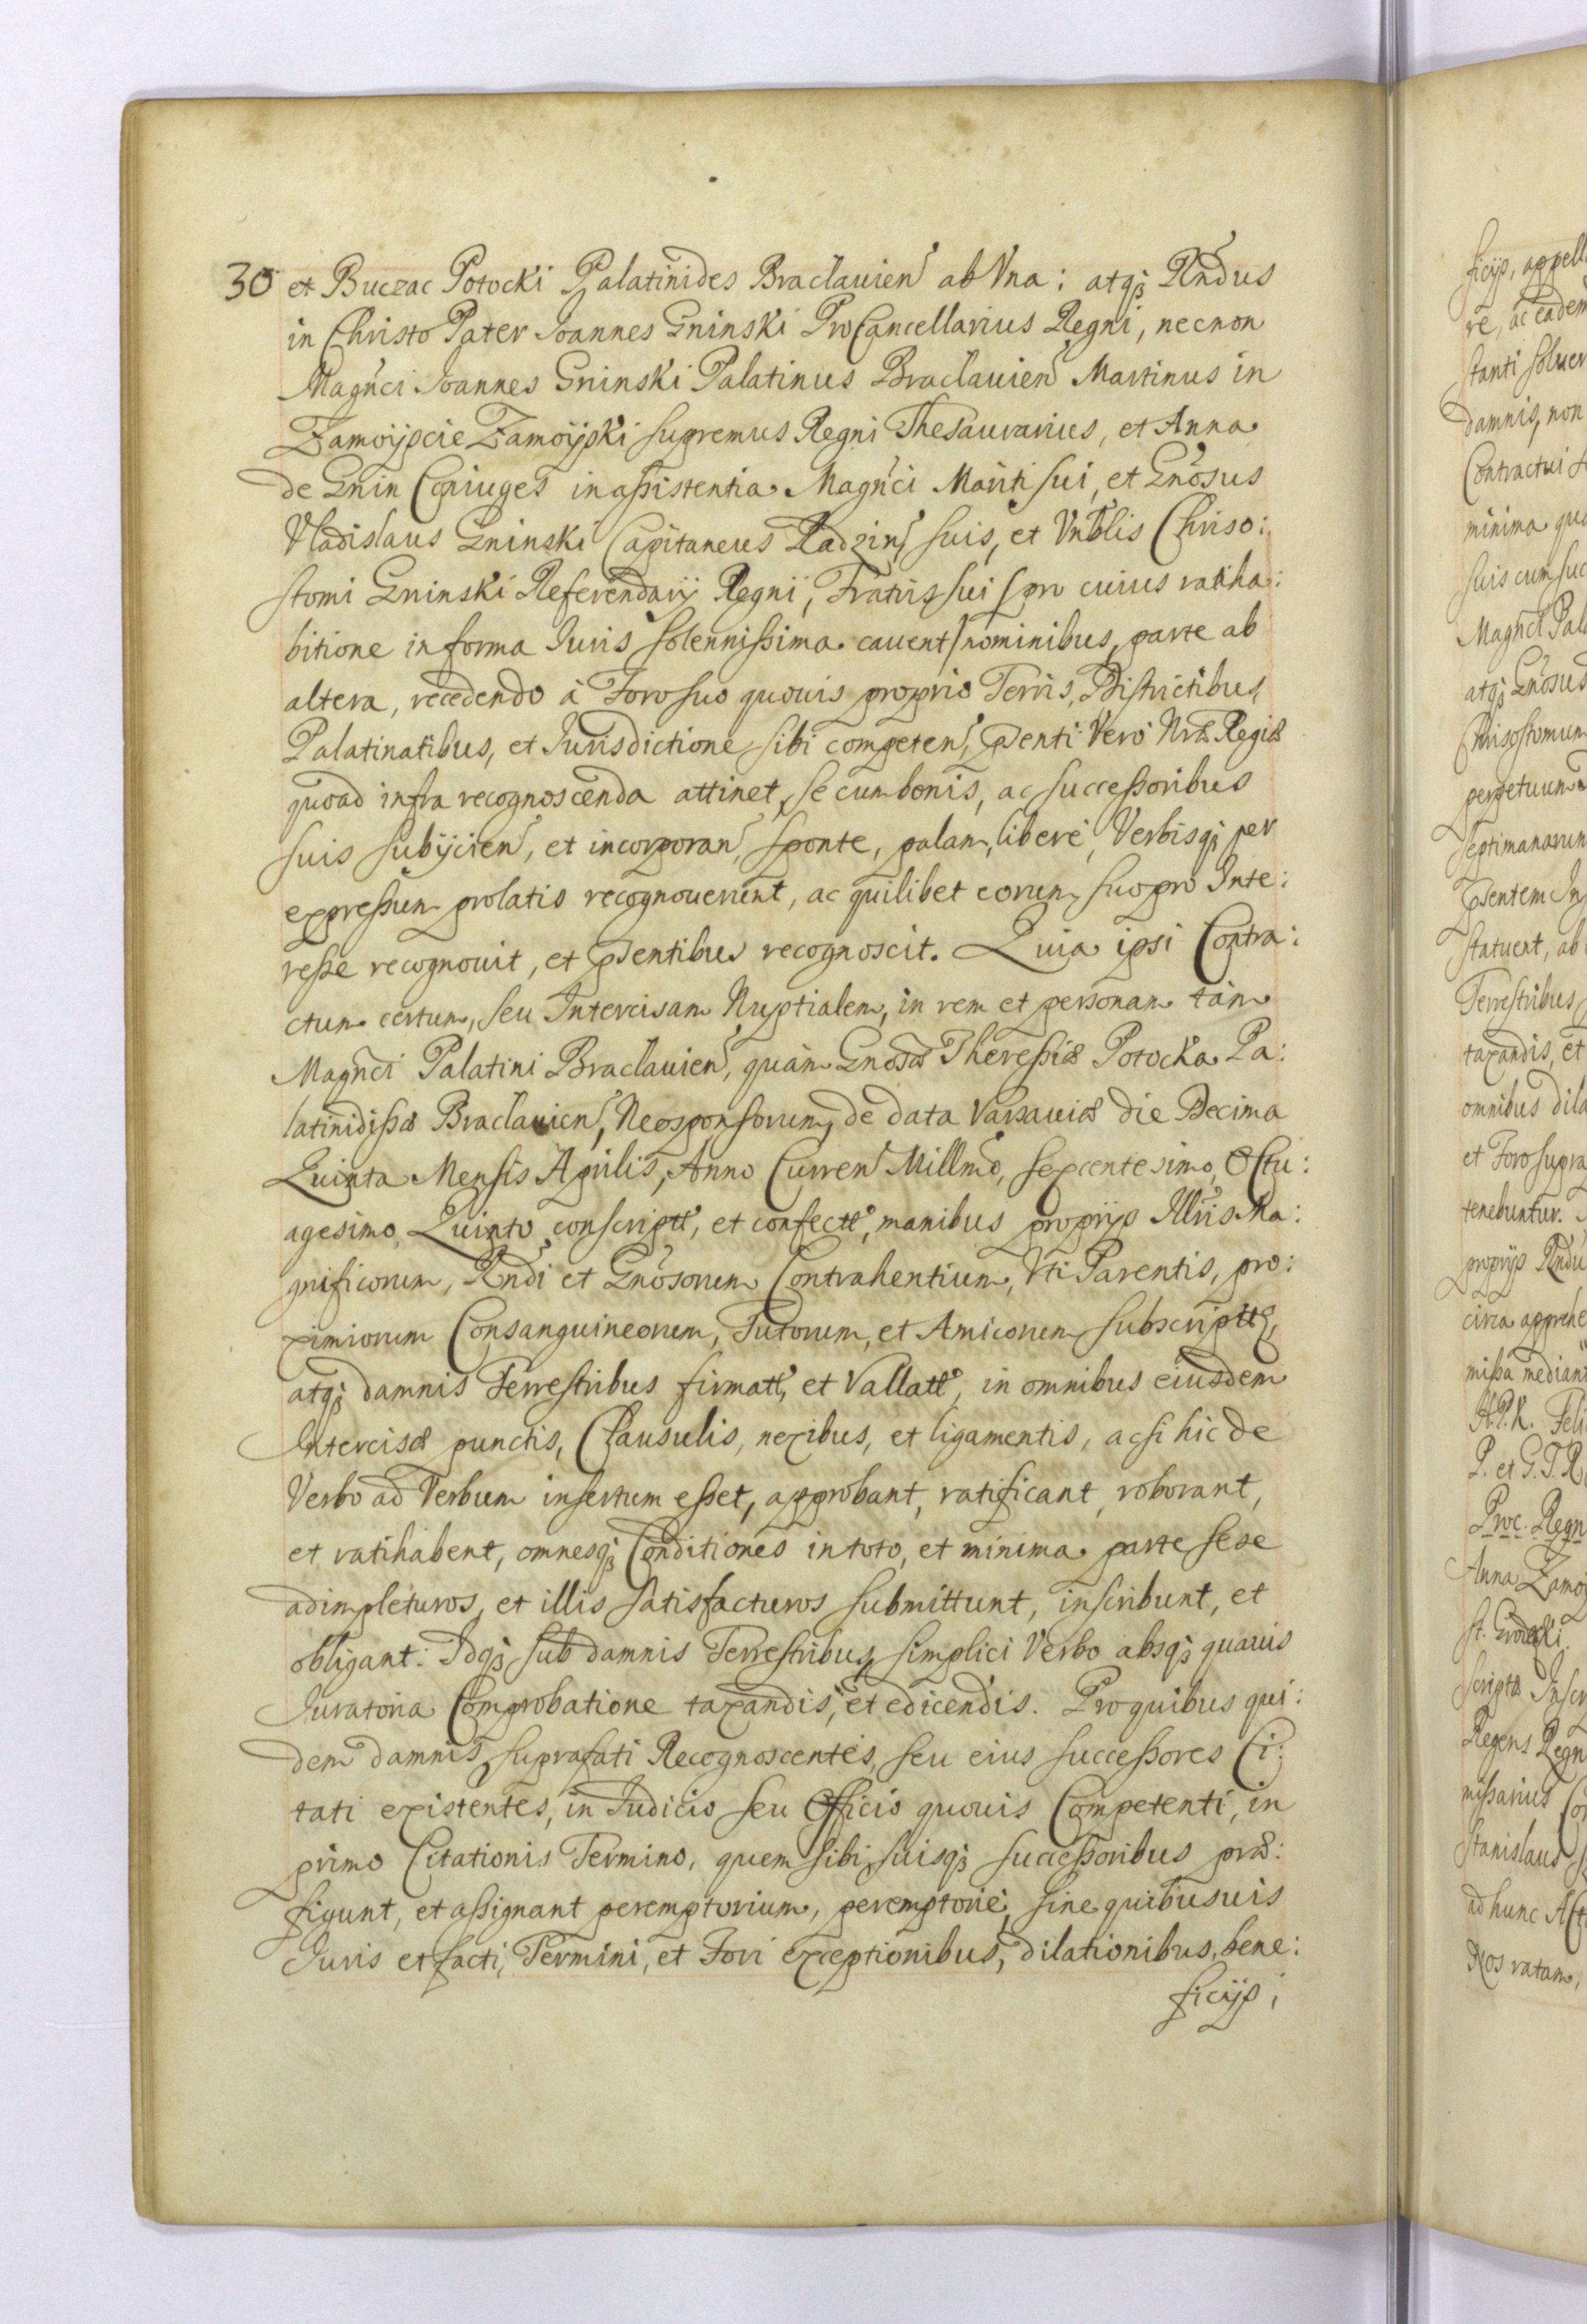 30 et Buczac Potocki Palatinides Braclauien ab Vna: atq; Rndus
in Christo Pater Ioannes Gninski ProCancellarius Regni, necnon
Magnci Ioannes Gninski Palatinus Braclauien Martinus in
Zamoijscie Zamoijski supremus Regni Thesaurarius, et Anna
de Gnin Coniuges in assistentia Magnci Mariti sui, et Gnosus
Vladislaus Gninski Capitaneus Radzin, suis, et Vrblis Chriso:
stomi Gninski Referendarij Regni, Fratris sui (pro cuius ratiha:
bitione in forma Iuris solennissima cauent) nominibus, parte ab
altera, recedendo à Foro suo quouis proprio Terris, Districtibus,
Palatinatibus, et Iurisdictione sibi competen, Pñti Verò Nrae Regiae
quoad infra recognoscenda attinet, se cum bonis, ac successoribus
suis subijcien, et incorporan, sponte, palam, liberè, Verbisq; per
expressum prolatis recognouerunt, ac quilibet eorum suo pro Inte:
resse recognouit, et Pñtibus recognoscit. Quia ipsi Contra:
ctum certum, seu Intercisam Nuptialem, in rem et personam tàm
Magnci Palatini Braclauien, quàm Gnosae Theressiae Potocka Pa:
latinidissae Braclauien, Neosponsorum, de data Varsauiae die Decima
Quinta Mensis Aprilis, Anno Curren Millmo, sexcentesimo, Octu:
agesimo, Quinto conscriptt, et confectt, manibus proprijs Illris Ma:
gnificorum, Rndi et Gnosorum Contrahentium, Vti Parentis, pro:
ximiorum Consanguineorum, Tutorum, et Amicorum subscriptt,
atq; damnis Terrestribus firmatt, et Vallatt, in omnibus eiusdem
Intercisae punctis, Clausulis, nexibus, et ligamentis, ac si hic de
Verbo ad Verbum insertum esset, approbant, ratificant, roborant,
et ratihabent, omnesq; Conditiones in toto, et minima parte sese
adimpleturos, et illis satisfacturos submittunt, inscribunt, et
obligant: Idq; sub damnis Terrestribus, simplici Verbo absq; quauis
Iuratoria Comprobatione taxandis, et edicendis. Pro quibus qui:
dem damnis, suprafati Recognoscentes, seu eius successores Ci:
tati existentes, in Iudicio seu Officio quouis Competenti, in
primo Citationis Termino, quem sibi, suisq; successoribus prae:
figunt, et assignant peremptorium, peremptoriè, sine quibusuis
Iuris et facti, Termini, et Fori exceptionibus, dilationibus, bene:
ficijs,